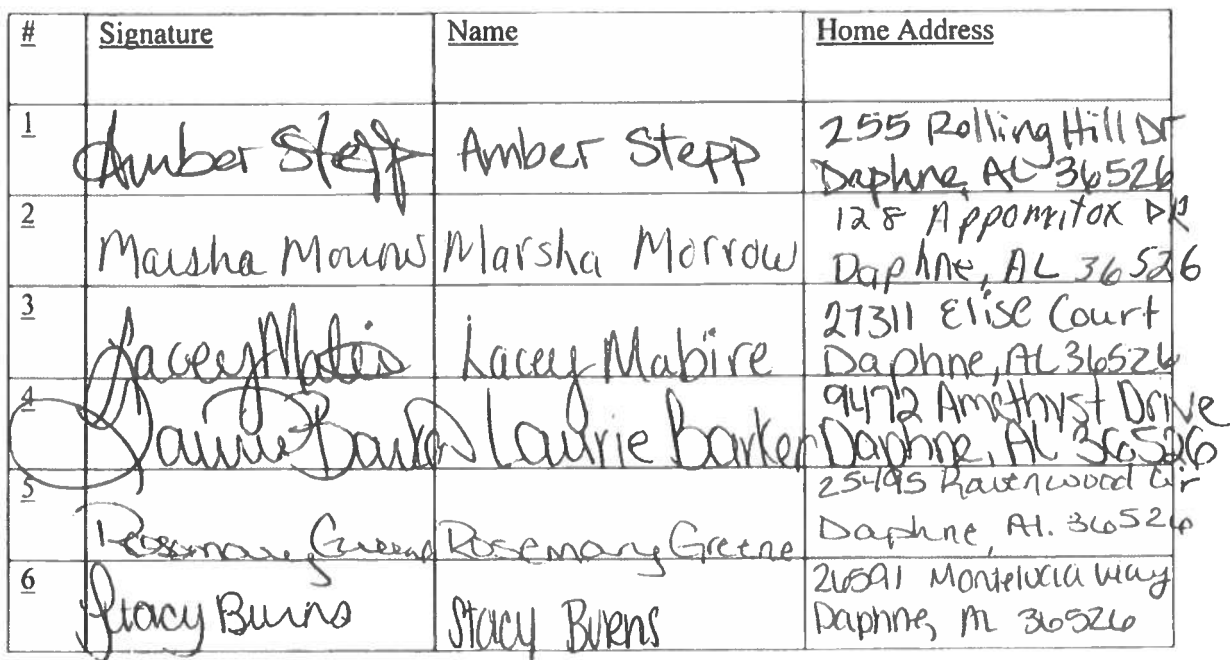 # Signature Name Home Address
1 Amber Stepp Amber Stepp 255 Rolling Hill Dr
Daphne, AL 36526
2 Marsha Morrow Marsha Morrow 128 Appomitox DR
Daphne, AL 36526
3 Lacey Mabire Lacey Mabire 27311 Elise Court
Daphne, AL 36526
4 Laurie Barker Laurie Barker 9472 Amethyst Drive
Daphne, AL 36526
5 Rosemary Greene Rosemary Greene 25495 Ravenwood Cir
Daphne, Al. 36526
6 Stacy Burns Stacy Burns 26591 Montelucia Way
Daphne, AL 36526